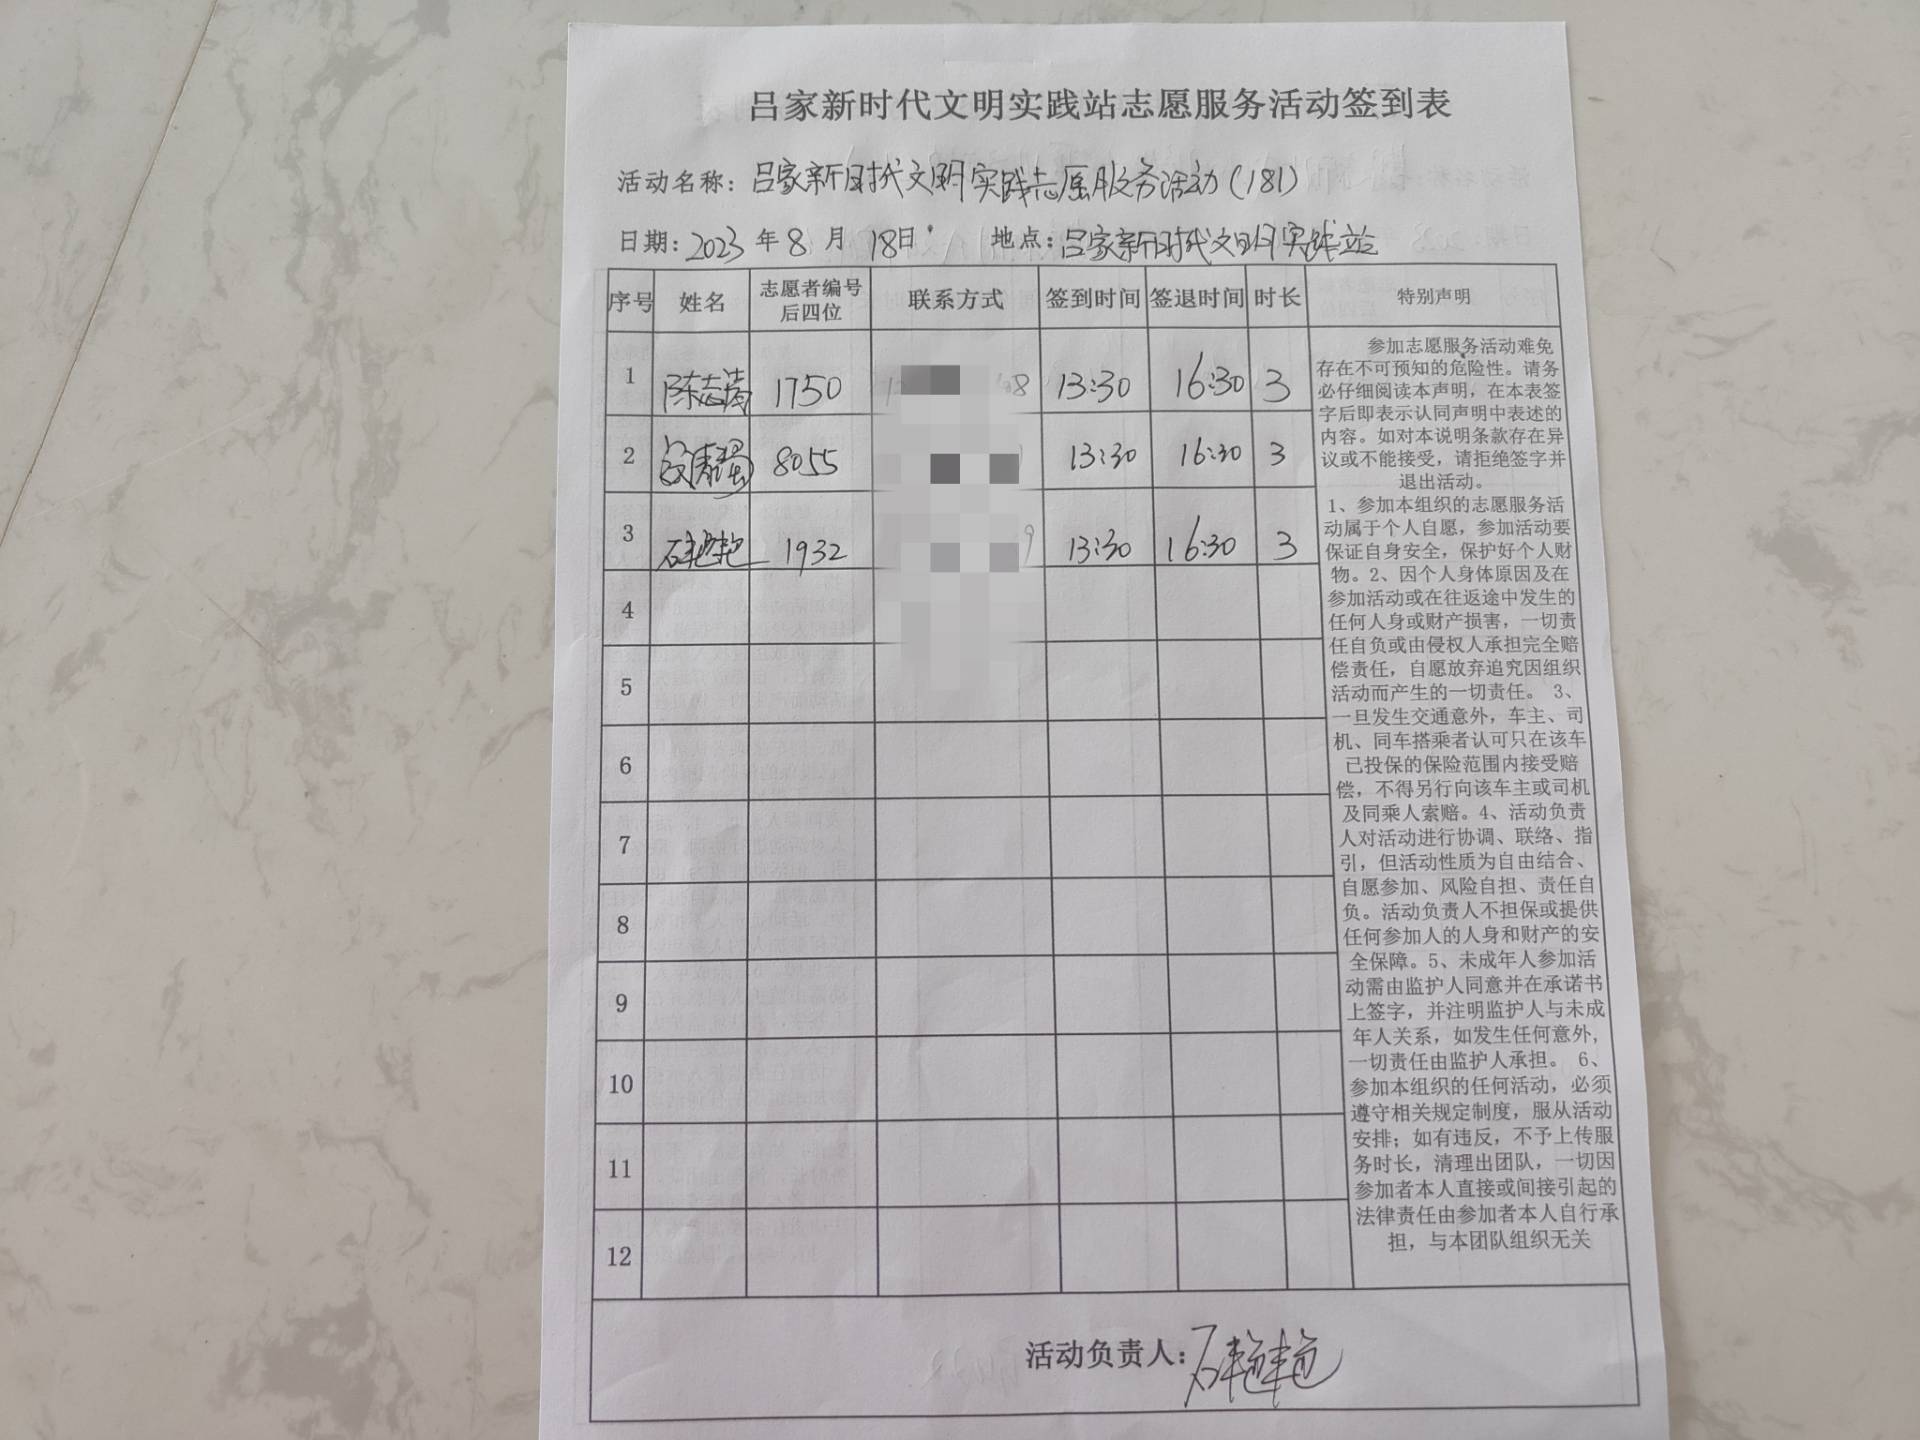 吕家新时代文明实践站志愿服务活动签到表
活动名称：吕家新时代文明实践志愿服务活动（181）
日期：2023年8月18日 地点：吕家新时代文明实践站
序号 姓名 志愿者编号后四位 联系方式 签到时间 签退时间 时长 特别声明
1 陈志涛 1750 13:30 16:30 3
2 8055 13:30 16:30 3
3 石艳艳 1932 13:30 16:30 3
4
5
6
7
8
9
10
11
12
参加志愿服务活动难免
存在不可预知的危险性。请务
必仔细阅读本声明，在本表签
字后即表示认同声明中表述的
内容。如对本说明条款存在异
议或不能接受，请拒绝签字并
退出活动。
1、参加本组织的志愿服务活
动属于个人自愿，参加活动要
保证自身安全，保护好个人财
物。2、因个人身体原因及在
参加活动或在往返途中发生的
任何人身或财产损害，一切责
任自负或由侵权人承担完全赔
偿责任，自愿放弃追究因组织
活动而产生的一切责任。 3、
一旦发生交通意外，车主、司
机、同车搭乘者认可只在该车
已投保的保险范围内接受赔
偿，不得另行向该车主或司机
及同乘人索赔。4、活动负责
人对活动进行协调、联络、指
引，但活动性质为自由结合、
自愿参加、风险自担、责任自
负。活动负责人不担保或提供
任何参加人的人身和财产的安
全保障。5、未成年人参加活
动需由监护人同意并在承诺书
上签字，并注明监护人与未成
年人关系，如发生任何意外，
一切责任由监护人承担。 6、
参加本组织的任何活动，必须
遵守相关规定制度，服从活动
安排；如有违反，不予上传服
务时长，清理出团队，一切因
参加者本人直接或间接引起的
法律责任由参加者本人自行承
担，与本团队组织无关
活动负责人：石艳艳